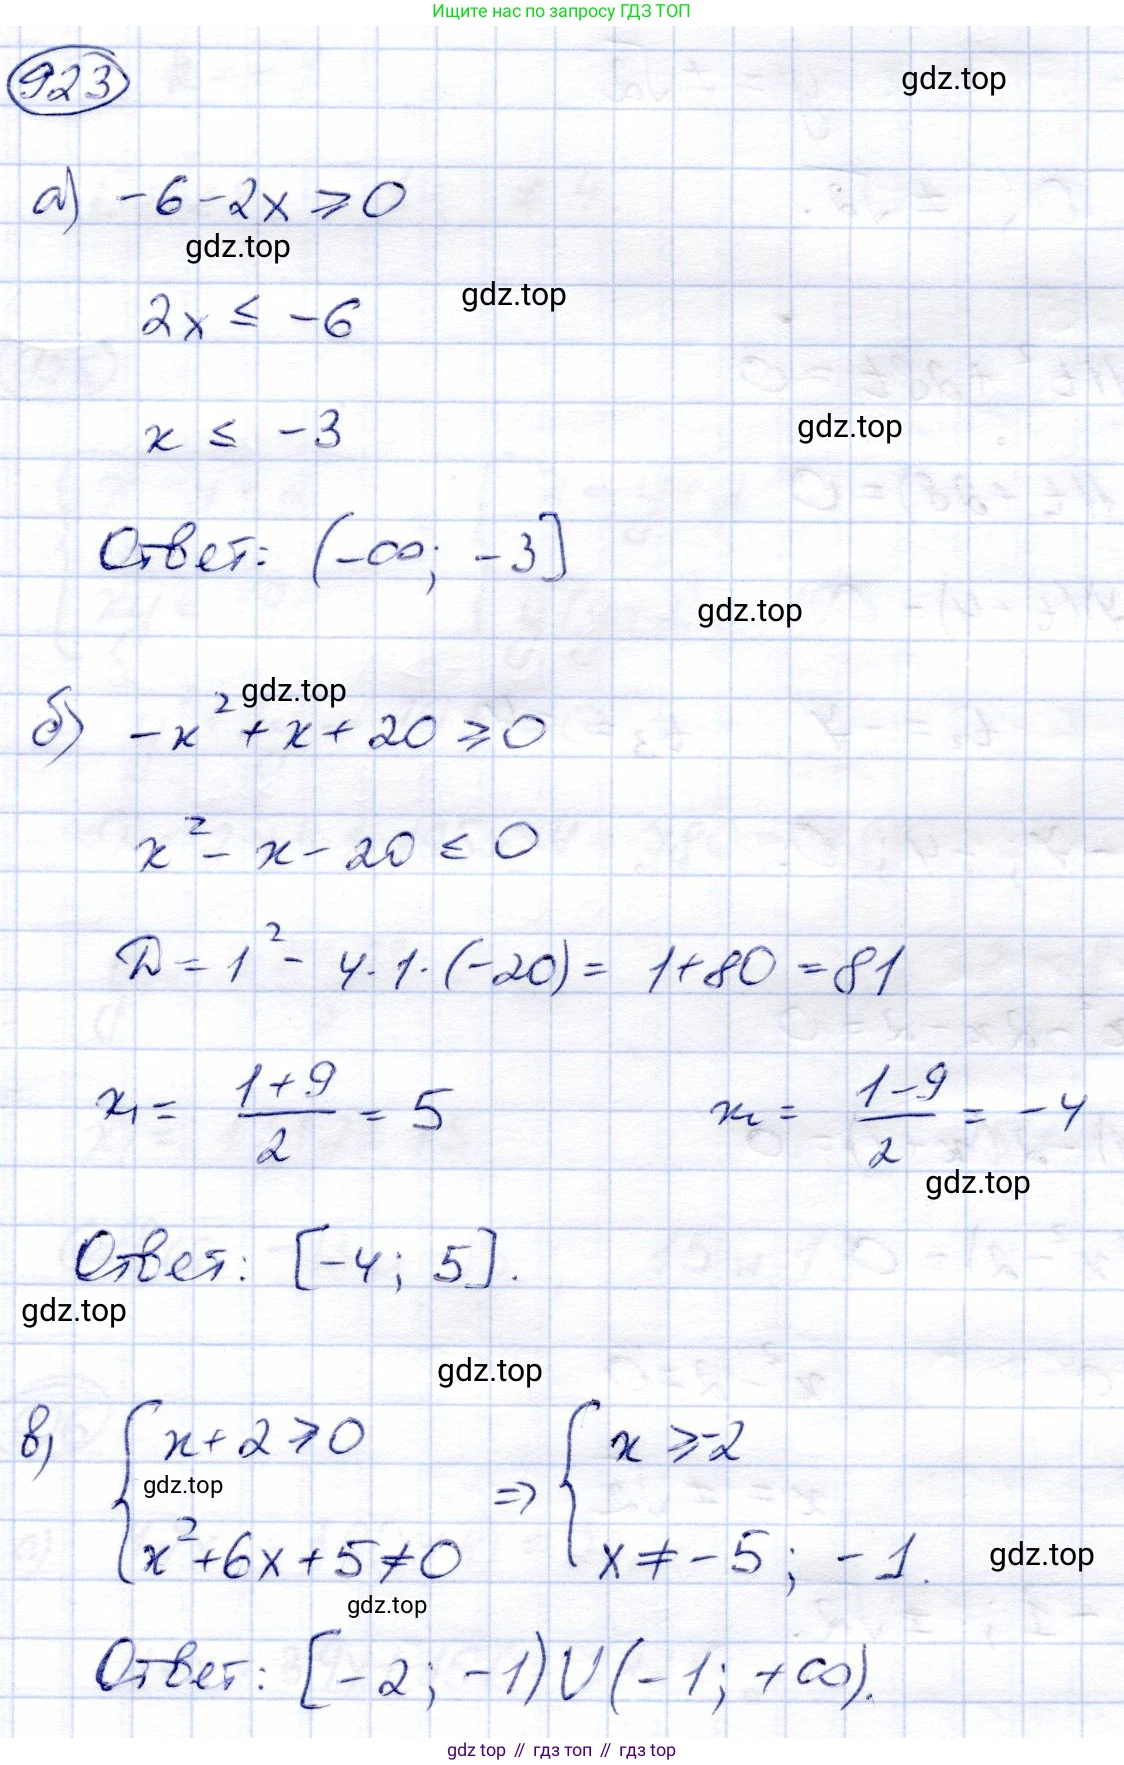 Ищите нас по запросу ГДЗ ТОП
923
gdz.top
а) -6-2x ⩾ 0
gdz.top
gdz.top
2x ≤ -6
x ≤ -3
gdz.top
Ответ: (-∞; -3]
gdz.top
gdz.top
б) -x² + x + 20 ⩾ 0
x² - x - 20 ≤ 0
D = 1² - 4·1·(-20) = 1+80 = 81
x₁ = (1+9)/2 = 5 x₂ = (1-9)/2 = -4
gdz.top
Ответ: [-4; 5].
gdz.top
gdz.top
в) { x+2 ⩾ 0 ⇒ { x ⩾ -2
gdz.top
x²+6x+5≠0 x ≠ -5; -1.
gdz.top
gdz.top
Ответ: [-2; -1) U (-1; +∞).
gdz top // гдз топ // гдз top